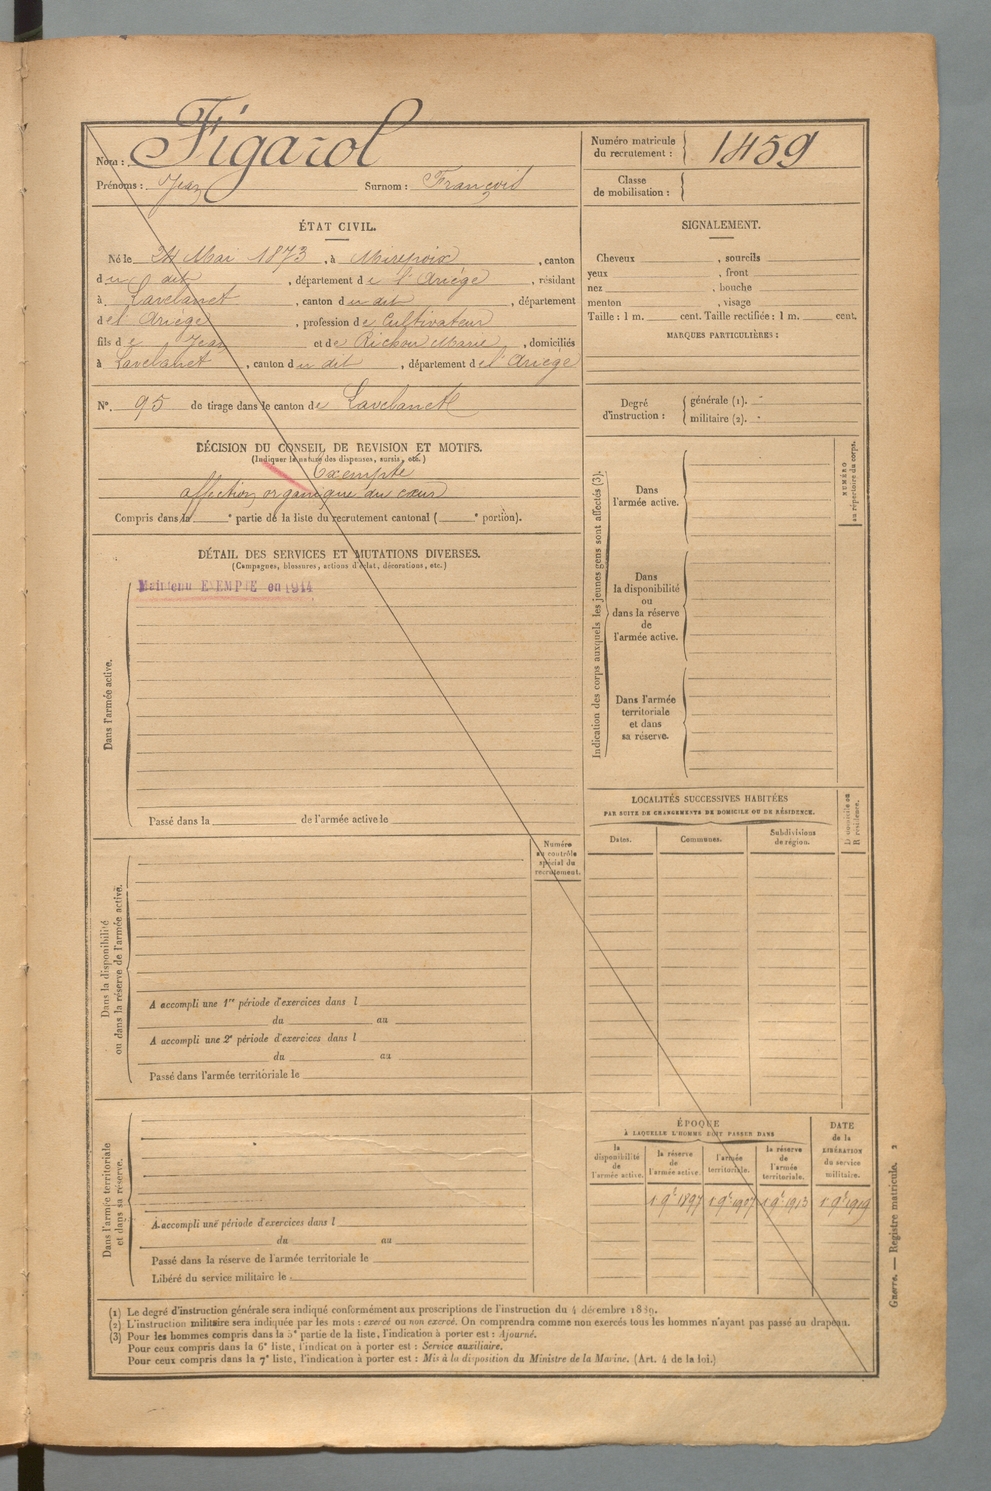 Nom : Figarol
Prénoms : Jean Surnom : François
Numéro matricule du recrutement : 1459
Classe de mobilisation :
ÉTAT CIVIL.
Né le 24 Mai 1873, à Mirepoix, canton
du dit, département de l'Ariège, résidant
à Lavelanet, canton du dit, département
de l'Ariège, profession de Cultivateur
fils de Jean et de Richou Marie, domiciliés
à Lavelanet, canton du dit, département de l'Ariège
N° 95 de tirage dans le canton de Lavelanet
SIGNALEMENT.
Cheveux , sourcils
yeux , front
nez , bouche
menton , visage
Taille : 1 m. cent. Taille rectifiée : 1 m. cent.
MARQUES PARTICULIÈRES :
Degré d'instruction : générale (1).
militaire (2).
DÉCISION DU CONSEIL DE REVISION ET MOTIFS.
(Indiquer la nature des dispenses, sursis, etc.)
Exempté
affection organique du cœur
Compris dans la e partie de la liste du recrutement cantonal ( e portion).
DÉTAIL DES SERVICES ET MUTATIONS DIVERSES.
(Campagnes, blessures, actions d'éclat, décorations, etc.)
Maintenu EXEMPTÉ en 1914
Dans l'armée active.
Passé dans la de l'armée active le
Numéro au contrôle spécial du recrutement.
Dans la disponibilité
ou dans la réserve de l'armée active.
A accompli une 1re période d'exercices dans l
du au
A accompli une 2e période d'exercices dans l
du au
Passé dans l'armée territoriale le
Dans l'armée territoriale
et dans sa réserve.
A accompli une période d'exercices dans l
du au
Passé dans la réserve de l'armée territoriale le
Libéré du service militaire le :
Indication des corps auxquels les jeunes gens sont affectés (3).
NUMÉRO
au répertoire du corps.
Dans
l'armée active.
Dans
la disponibilité
ou
dans la réserve
de
l'armée active.
Dans l'armée
territoriale
et dans
sa réserve.
LOCALITÉS SUCCESSIVES HABITÉES
PAR SUITE DE CHANGEMENTS DE DOMICILE OU DE RÉSIDENCE.
Dates.
Communes.
Subdivisions
de région.
D domicile ou
R résidence.
ÉPOQUE
À LAQUELLE L'HOMME DOIT PASSER DANS
DATE
de la
LIBÉRATION
du service
militaire.
la
disponibilité
de
l'armée active.
la réserve
de
l'armée active.
l'armée
territoriale.
la réserve
de
l'armée
territoriale.
1 9e 1897 1 9e 1907 1 9e 1913 1 9e 1919
(1) Le degré d'instruction générale sera indiqué conformément aux proscriptions de l'instruction du 4 décembre 1889.
(2) L'instruction militaire sera indiquée par les mots : exercé ou non exercé. On comprendra comme non exercés tous les hommes n'ayant pas passé au drapeau.
(3) Pour les hommes compris dans la 5e partie de la liste, l'indication à porter est : Ajourné.
Pour ceux compris dans la 6e liste, l'indication à porter est : Service auxiliaire.
Pour ceux compris dans la 7e liste, l'indication à porter est : Mis à la disposition du Ministre de la Marine. (Art. 4 de la loi.)
Guerre. — Registre matricule. 2